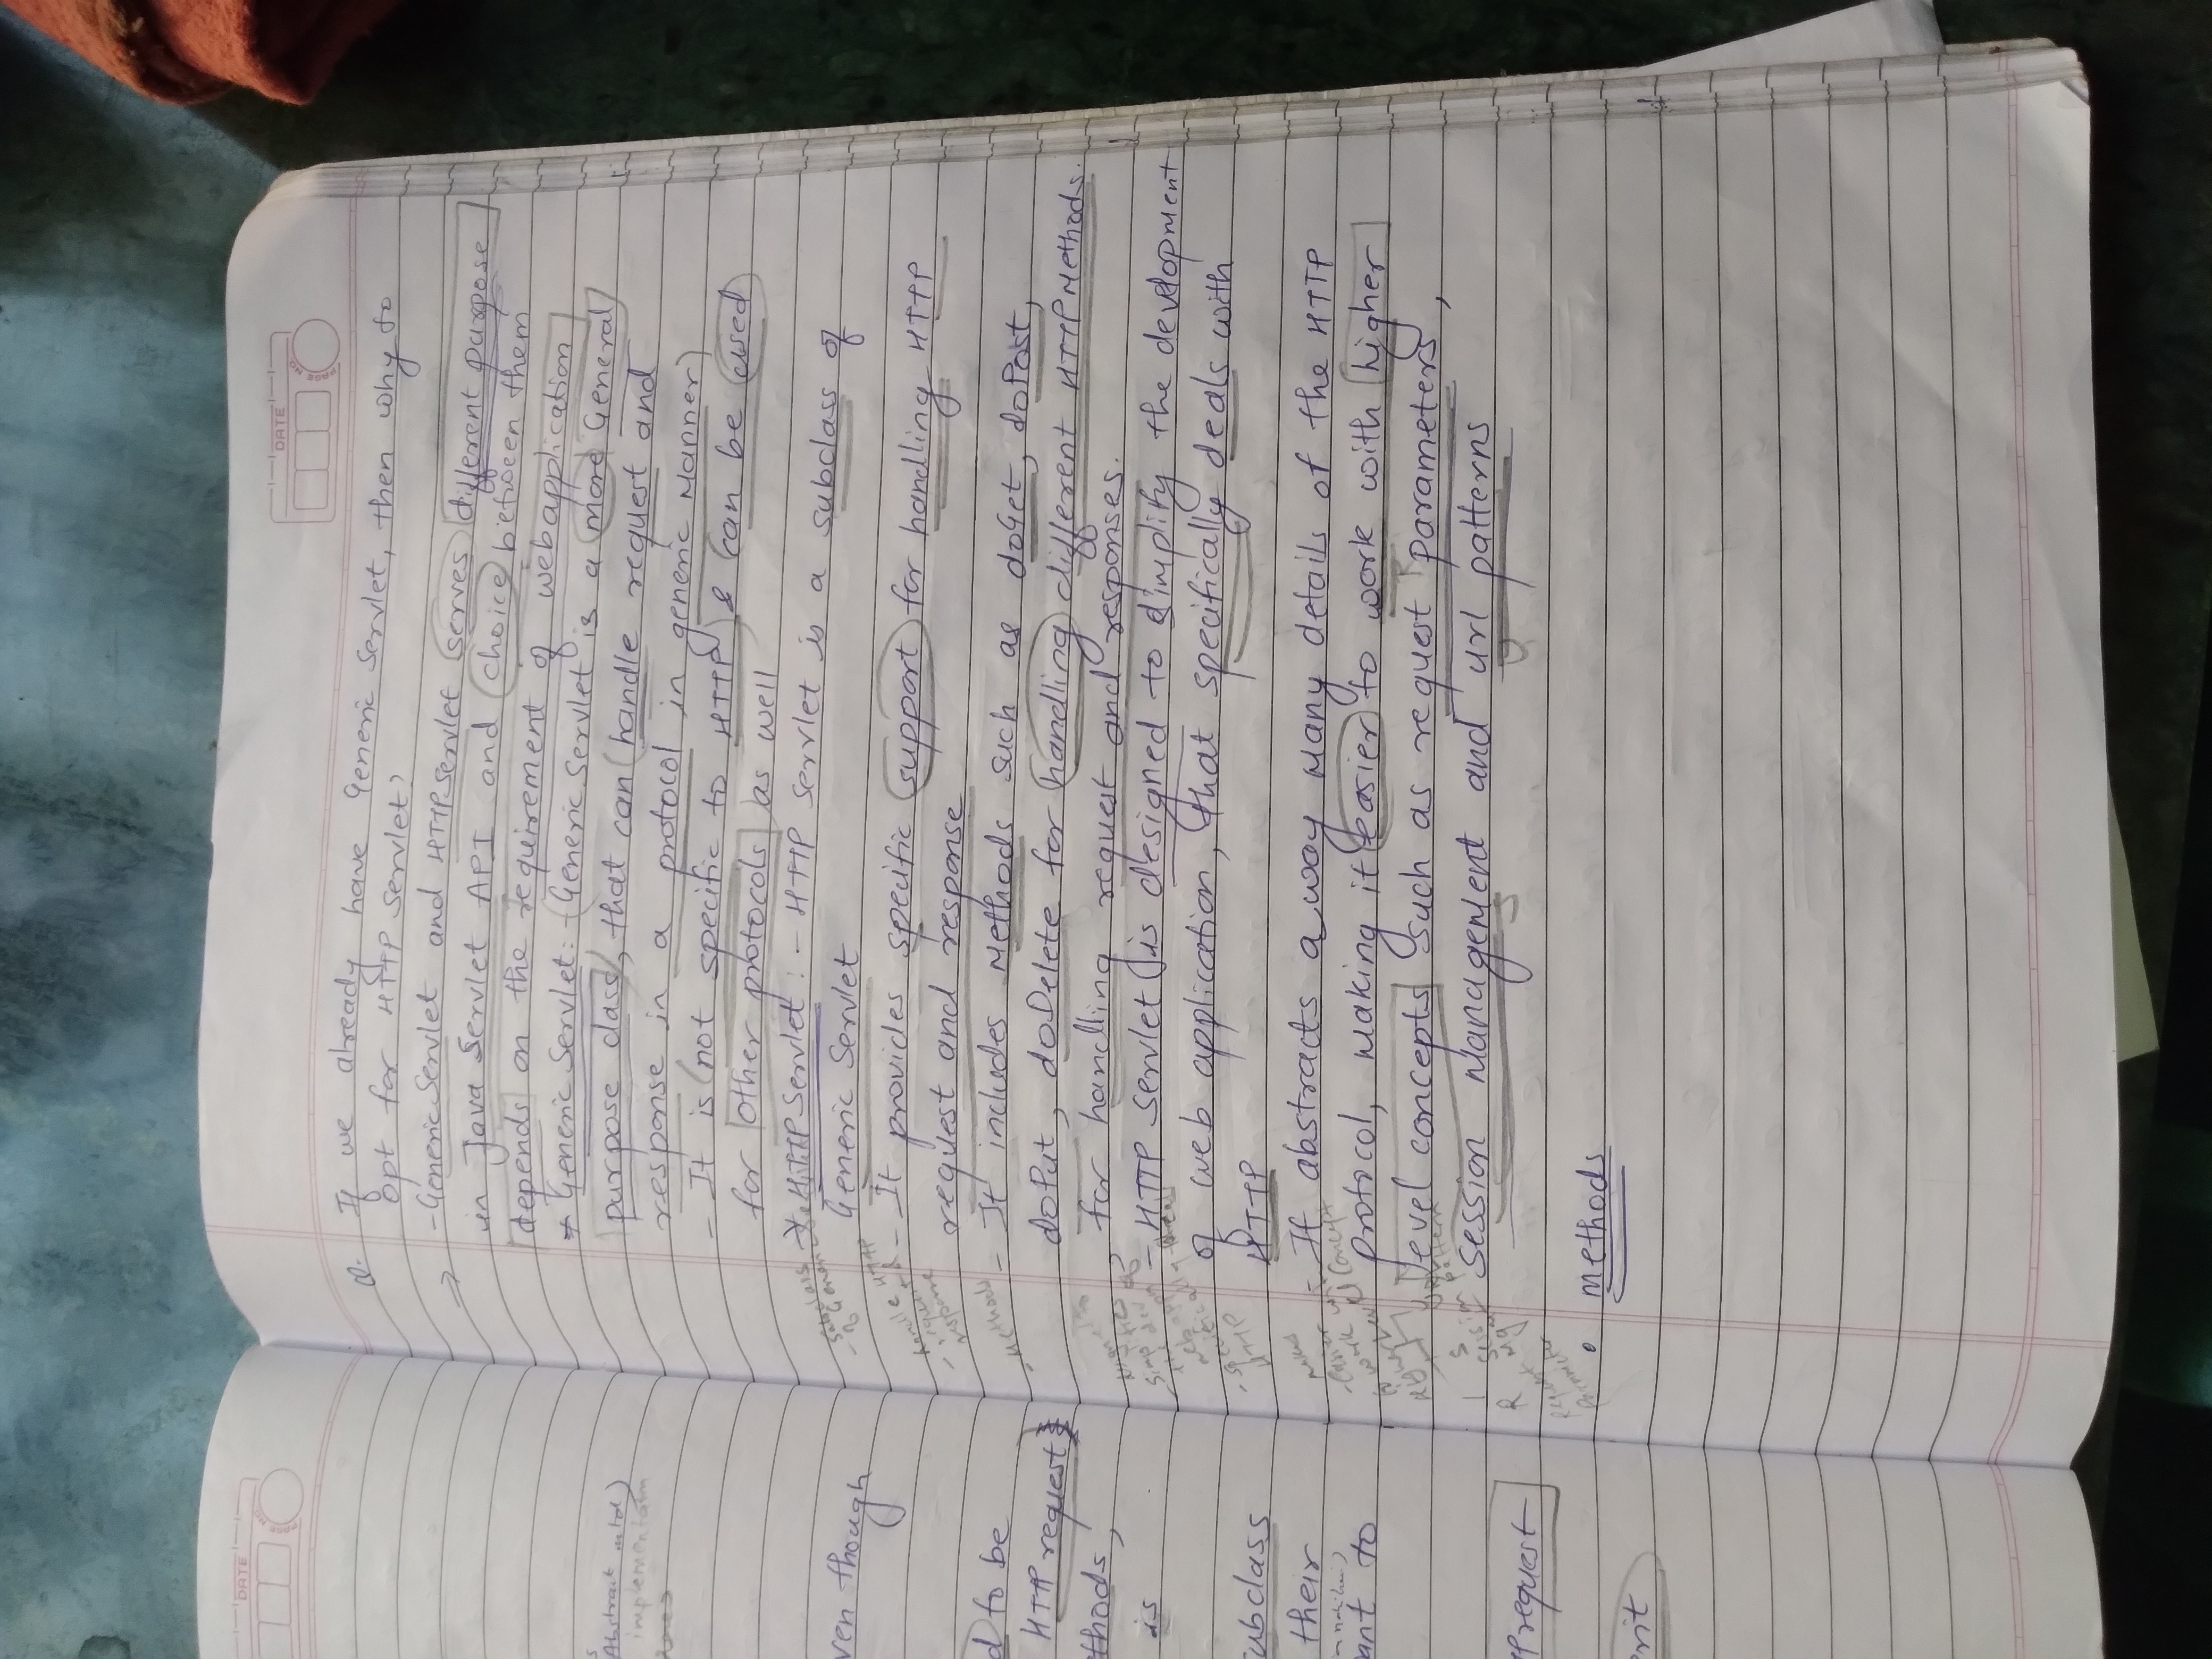 DATE
PAGE NO
DATE
PAGE NO
Abstract mtd)
implementatn
ven though
d to be
HTTP request
thods,
is
ubclass
their
ant to
request
erit
Q. If we already have Generic Servlet, then why to
opt for HTTP Servlet?
⇒ - Generic Servlet and HTTP servlet serves different purpose
in Java Servlet API and choice between them
depends on the requirement of web application
* Generic Servlet: - Generic Servlet is a more General
purpose class, that can handle request and
response in a protocol in generic Manner)
- It is (not specific to HTTP) & can be used
for other protocols as well
* HTTP Servlet : - HTTP Servlet is a subclass of
Generic Servlet
- It provides specific support for handling HTTP
request and response
- It includes Methods such as doGet, doPost,
doPut, doDelete for handling different HTTP Methods.
for handling request and responses.
- HTTP Servlet is designed to simplify the development
of web application, that specifically deals with
HTTP
- It abstracts away Many details of the HTTP
protocol, Making it easier to work with higher
level concepts such as request parameters,
session Management and url patterns
• methods
- Subclass
of Generic
- handle HTTP
request &
response
- Methods
simplifies
the dev of
web appn
- specifically deals
HTTP
makes
- easier
to work with
Higher Level Concept
R
S
Request
Parameter
Session
Mgmt
pattern